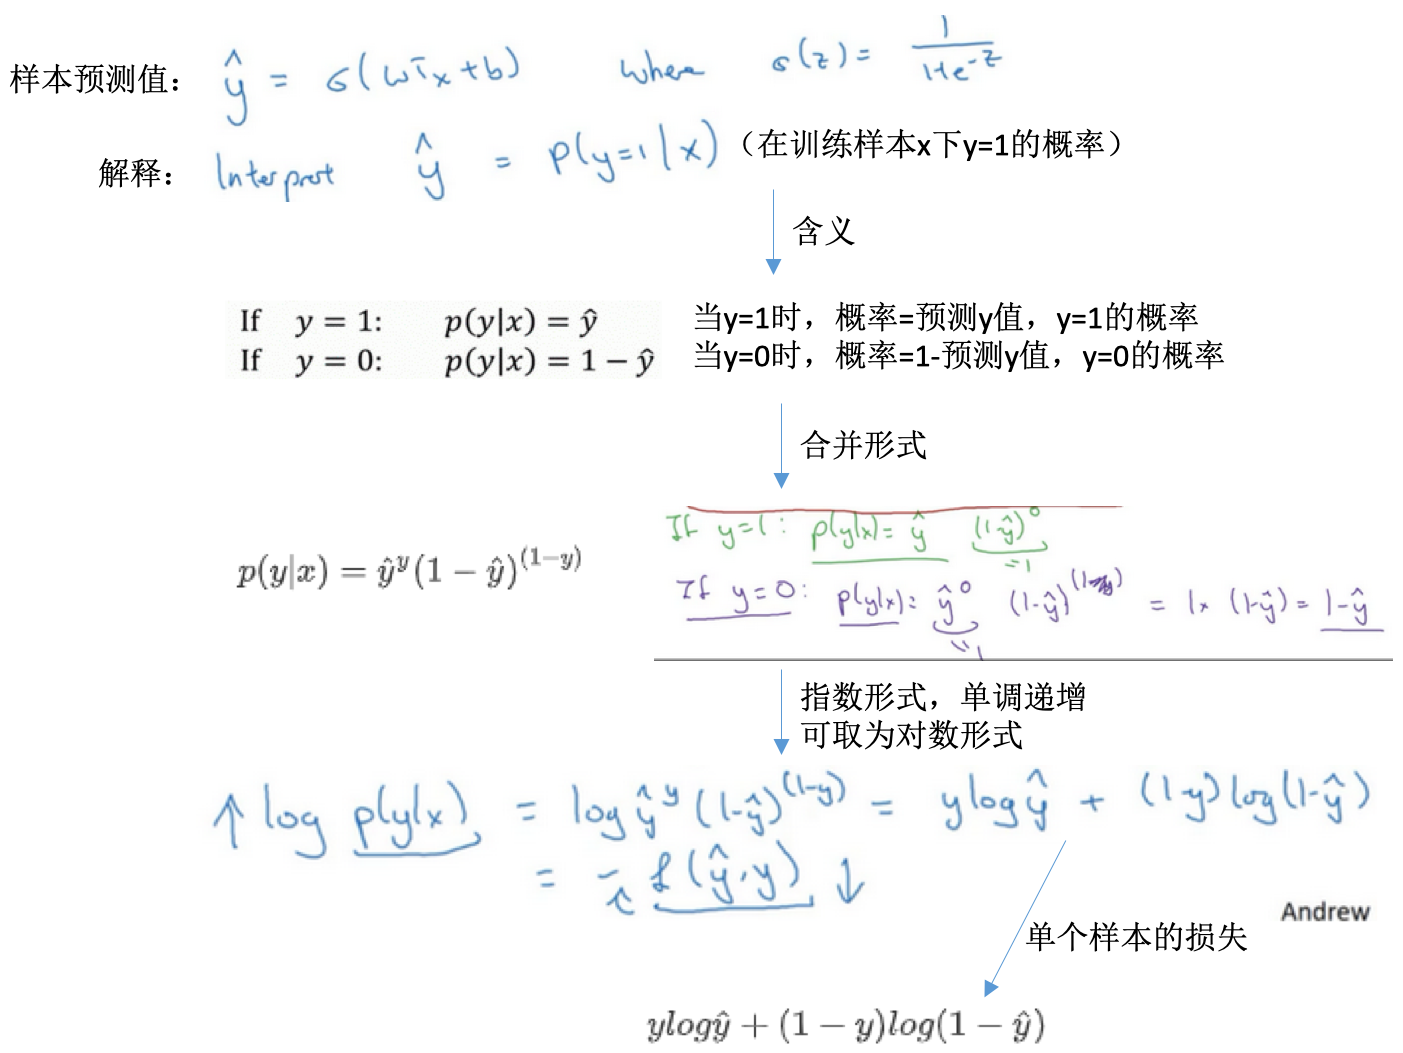 样本预测值： ŷ = σ(wᵀx + b) where σ(z) = 1/(1+e^{-z})
解释： Interpret ŷ = p(y=1|x)（在训练样本x下y=1的概率）
含义
If y = 1: p(y|x) = ŷ 当y=1时，概率=预测y值，y=1的概率
If y = 0: p(y|x) = 1 − ŷ 当y=0时，概率=1-预测y值，y=0的概率
合并形式
If y=1: p(y|x) = ŷ (1-ŷ)^0 =1
p(y|x) = ŷ^y(1 − ŷ)^{(1−y)}
If y=0: p(y|x) = ŷ^0 (1-ŷ)^{(1-y)} = 1× (1-ŷ) = 1-ŷ
=1
指数形式，单调递增
可取为对数形式
↑ log p(y|x) = log ŷ^y (1-ŷ)^{(1-y)} = y log ŷ + (1-y) log(1-ŷ)
= - ℒ(ŷ, y) ↓
Andrew
单个样本的损失
ylogŷ + (1 − y)log(1 − ŷ)